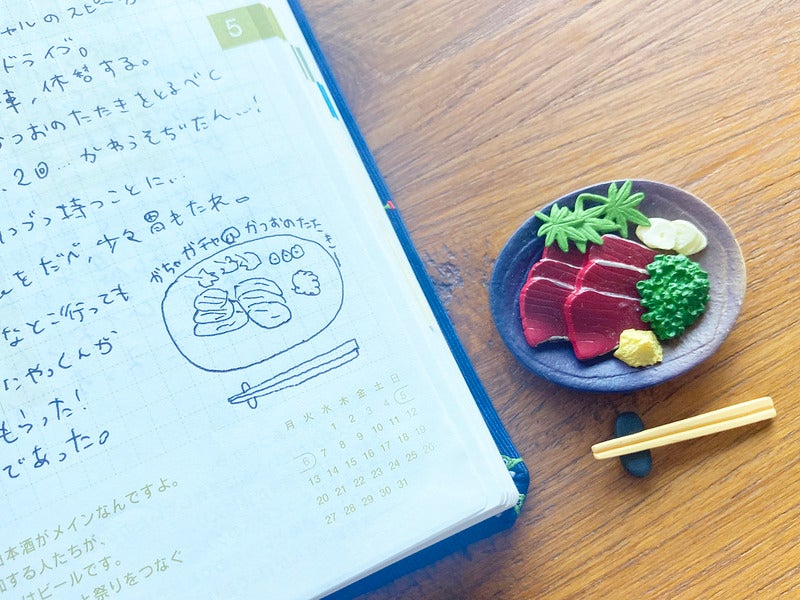 5
ドライブ。
車、休憩する。
つおのたたきをとるべく
2回… かわうそぢたん…！
持つことに…
をだべ、少々胃もたれ。
がちゃガチャ@かつおのたたき
なとこ行っても
にやっくんが
もらった！
であった。
月 火 水 木 金 土 日
1 2 3 4 5
6 7 8 9 10 11 12
13 14 15 16 17 18 19
20 21 22 23 24 25 26
27 28 29 30 31
日本酒がメインなんですよ。
加する人たちが、
はビールです。
と祭りをつなぐ